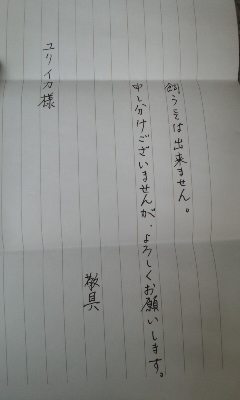 飼う事は出来ません。
申し分けございませんが、よろしくお願いします。
敬具
ユリイカ様